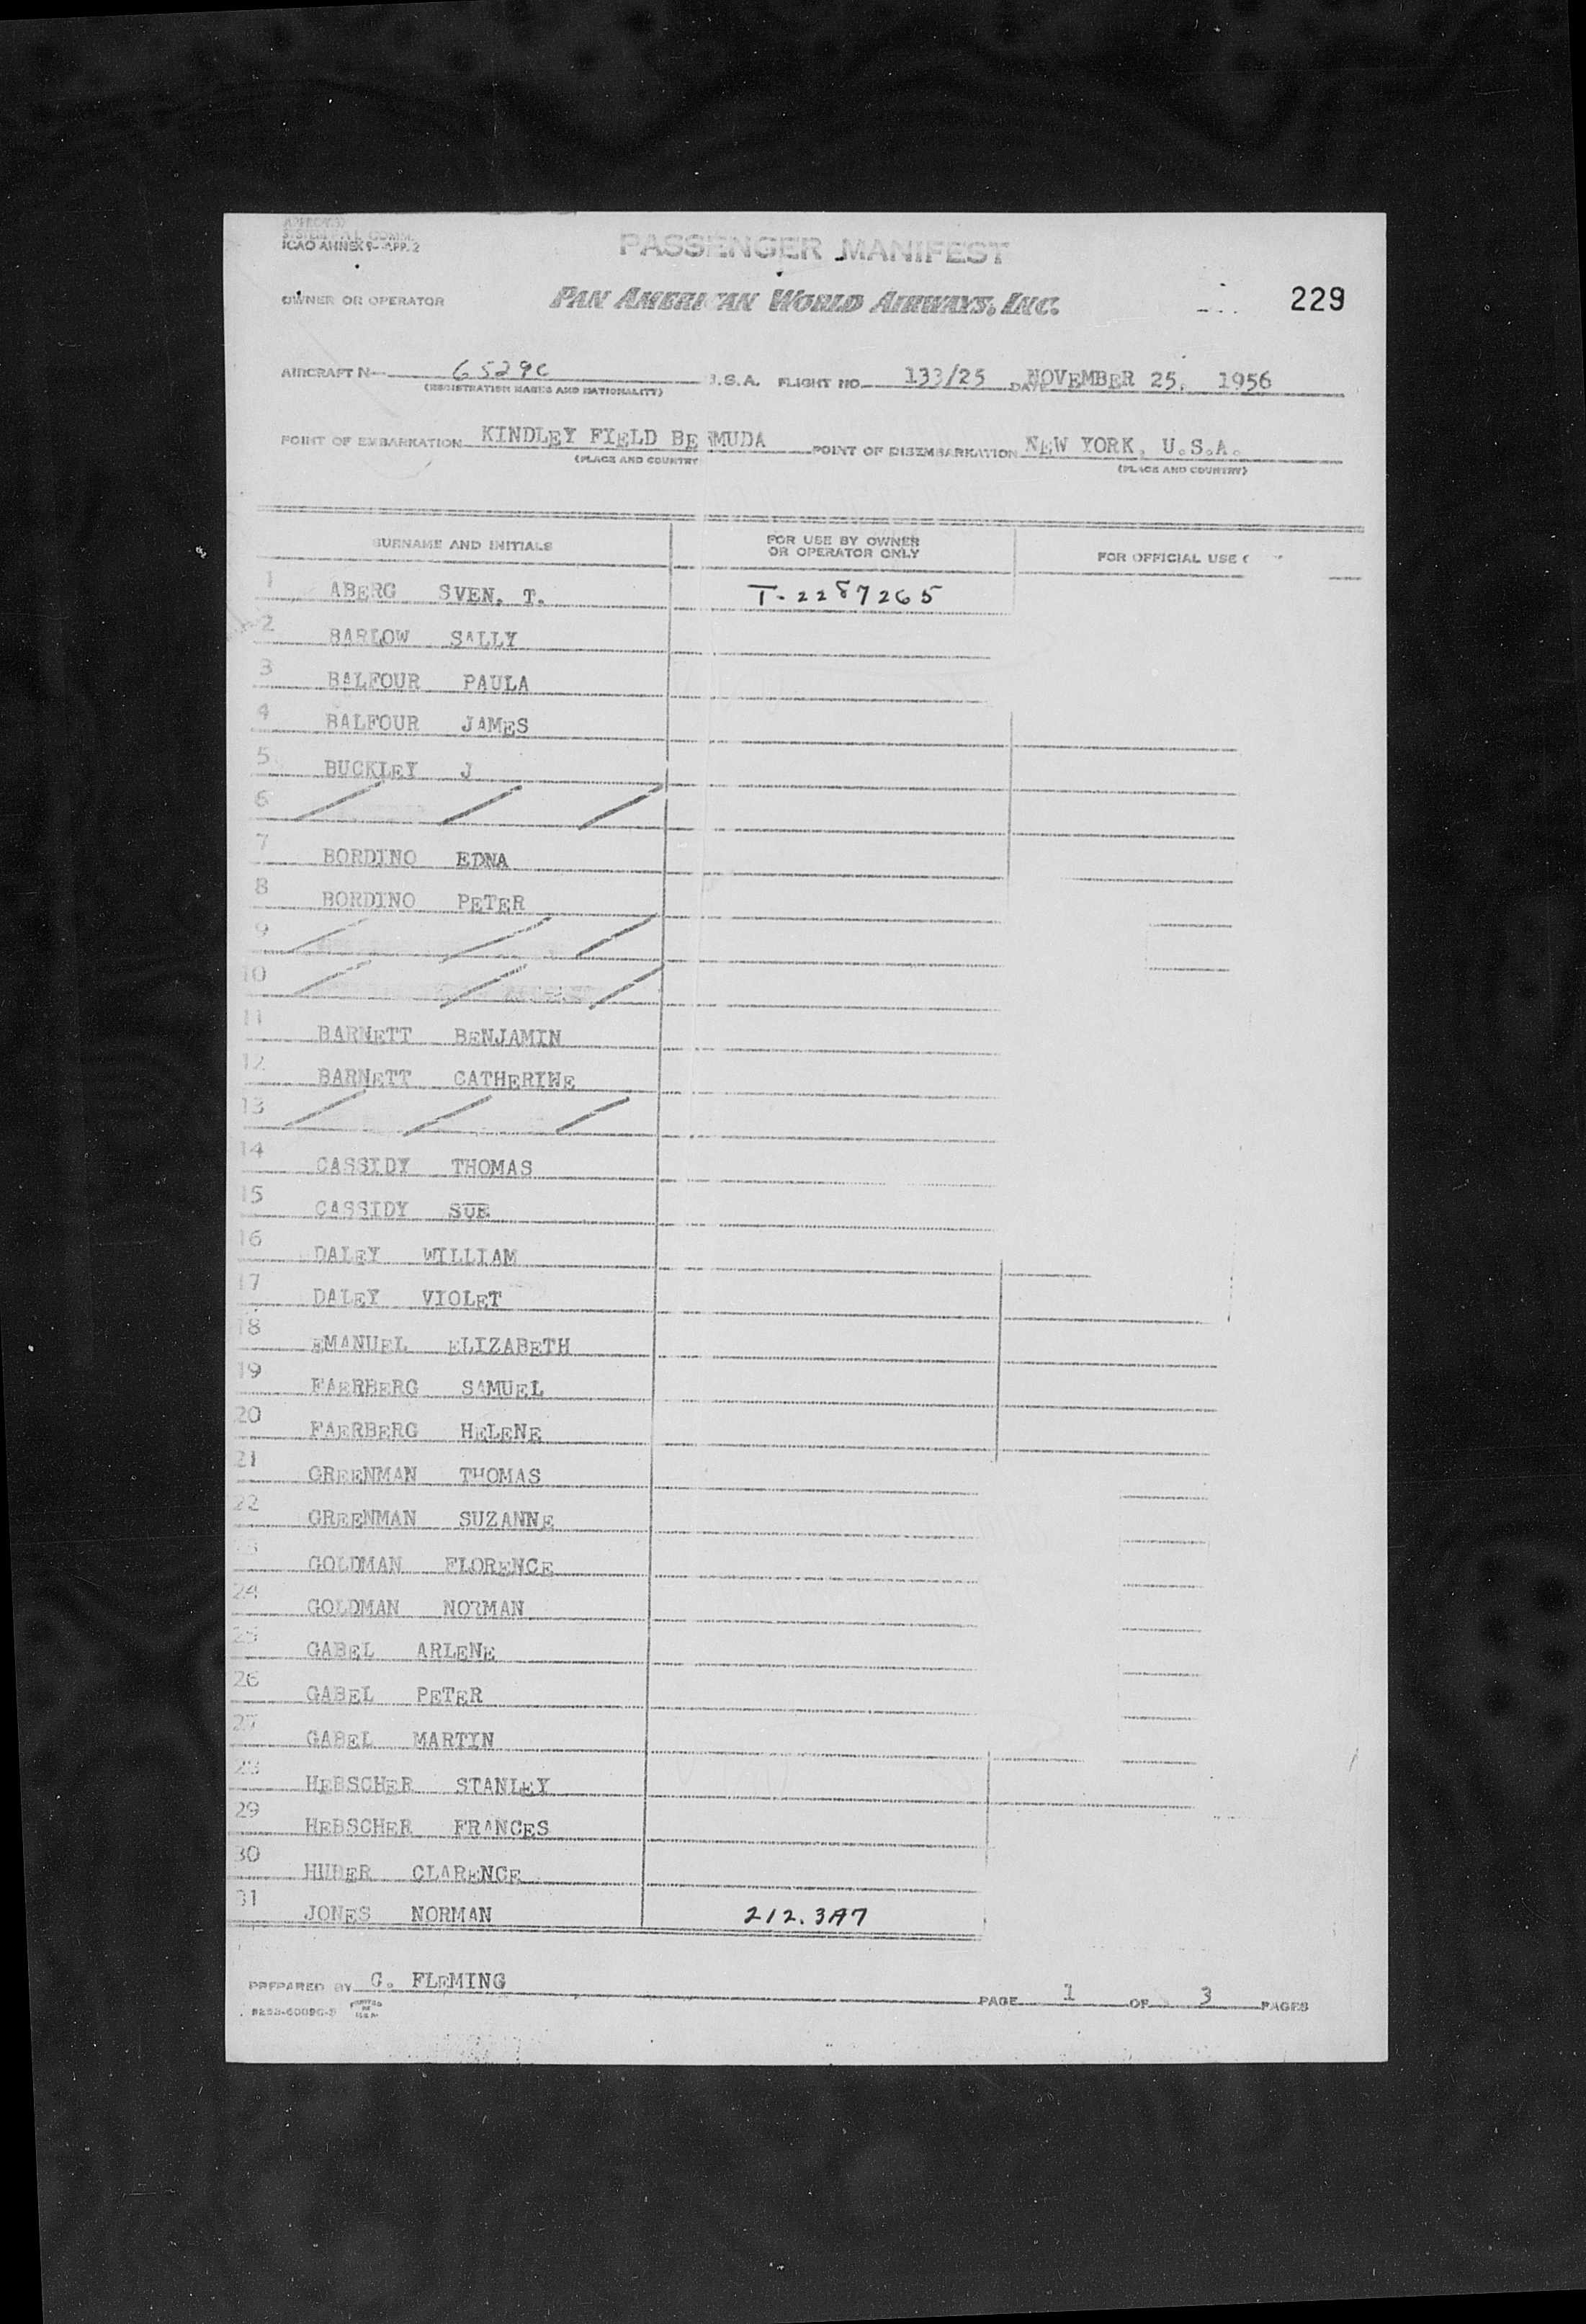 APPROVED
SYSTEM FAL COMM.
ICAO ANNEX 9- APP. 2
PASSENGER MANIFEST
OWNER OR OPERATOR PAN AMERICAN WORLD AIRWAYS, INC. 229
AIRCRAFT N 6529C U.S.A. FLIGHT NO. 133/25 DATE NOVEMBER 25, 1956
(REGISTRATION MARKS AND NATIONALITY)
POINT OF EMBARKATION KINDLEY FIELD BERMUDA POINT OF DISEMBARKATION NEW YORK, U.S.A.
(PLACE AND COUNTRY (PLACE AND COUNTRY)
SURNAME AND INITIALS FOR USE BY OWNER OR OPERATOR ONLY FOR OFFICIAL USE
1 ABERG SVEN, T. T-2287265
2 BARLOW SALLY
3 BALFOUR PAULA
4 BALFOUR JAMES
5 BUCKLEY J
6
7 BORDINO EDNA
8 BORDINO PETER
9
10
11 BARNETT BENJAMIN
12 BARNETT CATHERINE
13
14 CASSIDY THOMAS
15 CASSIDY SUE
16 DALEY WILLIAM
17 DALEY VIOLET
18 EMANUEL ELIZABETH
19 FAERBERG SAMUEL
20 FAERBERG HELENE
21 GREENMAN THOMAS
22 GREENMAN SUZANNE
23 GOLDMAN FLORENCE
24 GOLDMAN NORMAN
25 GABEL ARLENE
26 GABEL PETER
27 GABEL MARTIN
28 HEBSCHER STANLEY
29 HEBSCHER FRANCES
30 HUBER CLARENCE
31 JONES NORMAN 212.3A7
PREPARED BY G. FLEMING PAGE 1 OF 3 PAGES
PRINTED IN U.S.A.